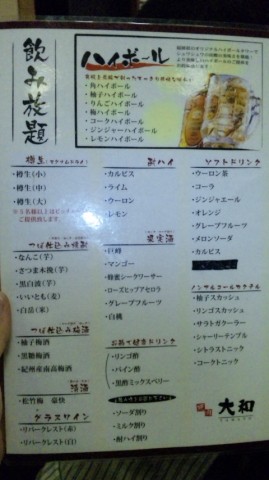 飲み放題
ハイボール
・角ハイボール
・柚子ハイボール
・りんごハイボール
・梅ハイボール
・コークハイボール
・ジンジャーハイボール
・レモンハイボール
樽生
・樽生(小)
・樽生(中)
・樽生(大)
つぼ仕込み焼酎
・なんこ(芋)
・さつま木挽(芋)
・黒白波(芋)
・いいとも(麦)
・白岳(米)
つぼ仕込み梅酒
・柚子梅酒
・黒糖梅酒
・紀州産南高梅酒
清酒
・松竹梅 豪快
グラスワイン
・リバークレスト(赤)
・リバークレスト(白)
酎ハイ
・カルピス
・ライム
・ウーロン
・レモン
果実酒
・巨峰
・マンゴー
・蜂蜜シークワーサー
・ローズヒップアセロラ
・グレープフルーツ
・白桃
お酢で健康ドリンク
・リンゴ酢
・パイン酢
・黒酢ミックスベリー
・ソーダ割り
・ミルク割り
・酎ハイ割り
ソフトドリンク
・ウーロン茶
・コーラ
・ジンジャエール
・オレンジ
・グレープフルーツ
・メロンソーダ
・カルピス
ノンアルコールカクテル
・柚子スカッシュ
・リンゴスカッシュ
・サラトガクーラー
・シャーリーテンプル
・シトラストニック
・コークトニック
大和
YAMATO